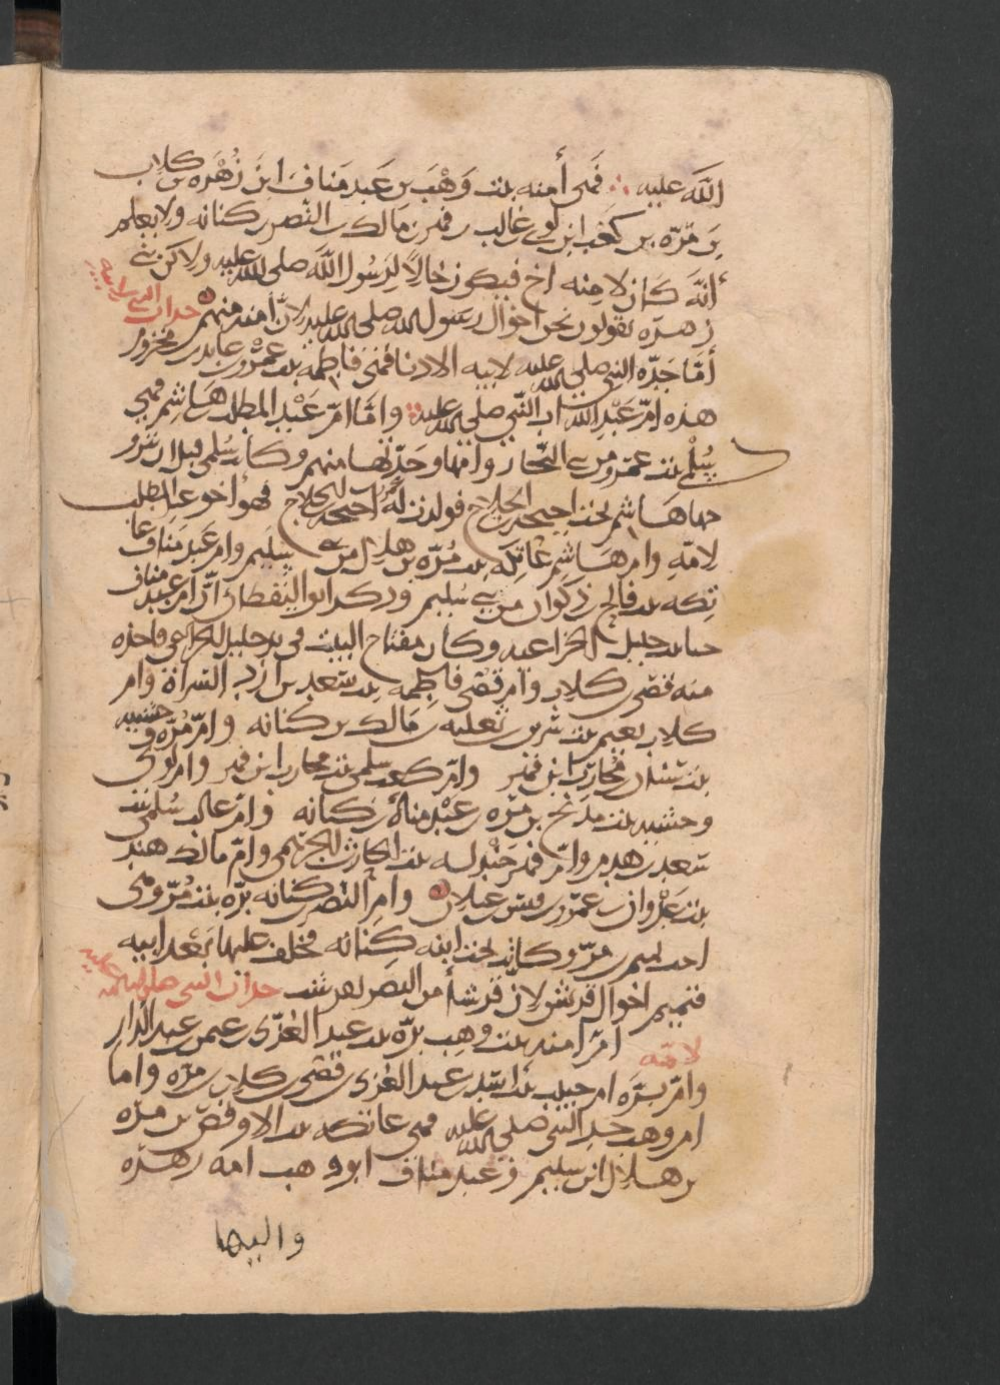 الله عليه ∴ فهى أمنه بنت وَهْبَ بن عَبد مَناف ابن زُهْره بن كلاب
بن مُرّه بن كعب ابن لوى غالب فهر بن مالك بن النضر بن كنانه ولا يعلم
أنّه كان لامنه اخ فيكون خالاً لرسول الله صلى الله عليه ولاكن بنى
زهره يقولون نحن اخوال رسول الله صلى الله عليه لانّ امنه منهم جدات النبى لابيه
أمّا جدّه النبى صلى الله عليه لابيه الادنا فهى فاطمه بنت عمرو بن عايد بن مخزوم
هذه امّ عَبْد الله اب النّبى صلى الله عليه وامّا امّ عَبْد المطلب هاشم فهى
سُلْمى بنت عمرو من بنى النّجار وامها وجدّتها منهم وكان سُلمى قبل ان يتزو
جها هاشم تحت احيحه بن الجلاح فولدت له عمرو بن احيحه بن الجلاح فهو اخو عبد المطلب
لامّهِ وام هاشم عاتكه بنت مُرّه بن هلال من بنى سليم وام عبد مناف عا
تكه بنت فالج بن ذكوان من بنى سُليم وذكر ابو اليقظان أنّ ام عبد مناف
حبا بنت حليل الخزاعيه وكان مفتاح البيت فى يد حليل الخزاعى فاخذه
منه قصَى بن كلاب وام قصَى فاطمه بنت سَعد بن ازد السّراة وام
كلاب نعيم بنت سرير بن ثعلبه بن مالك بن كنانه وامّ مُرّه وحشيه
بنت شيبان بن مُحارب ابن فهر وامّ كعب سلمى بنت محارب ابن فهر وام لوى
وحشيه بنت مدلج بن مرّه بن عَبْد مناة بن كنانه وام غالب سُلمى بنت
سَعد بن هديم وامّ فهر جَنْدله بنت الحارث الجرهمى وامّ مالك هند
بنت عَدْوان بن عمرو بن قيس عيلان وام النّضر بن كنانه برّه بنت مُرّ وهى
اخت تميم بن مرّ وكانت تحت ابنه كِنانه فخلف عليها بَعْد ابيه
فتميم اخوال قريش لان قرشاً من النضر تقرشت جدات النبى صلى الله عليه
لامّه امّ امنه بنت وهب برّه بنت عبد العُزّى بن عيمن بن عبد الدّار
وامّ برّه ام حبيب بنت اسَد بن عبد العُزى بن قصَى بن كلاب بن مرّه واما
ام وهب جد النّبى صلى الله عليه فهى عاتكه بنت الاوقص بن مرّه
بن هلال ابن سليم وعبد مناف ابو وهب امه زهره
واليها